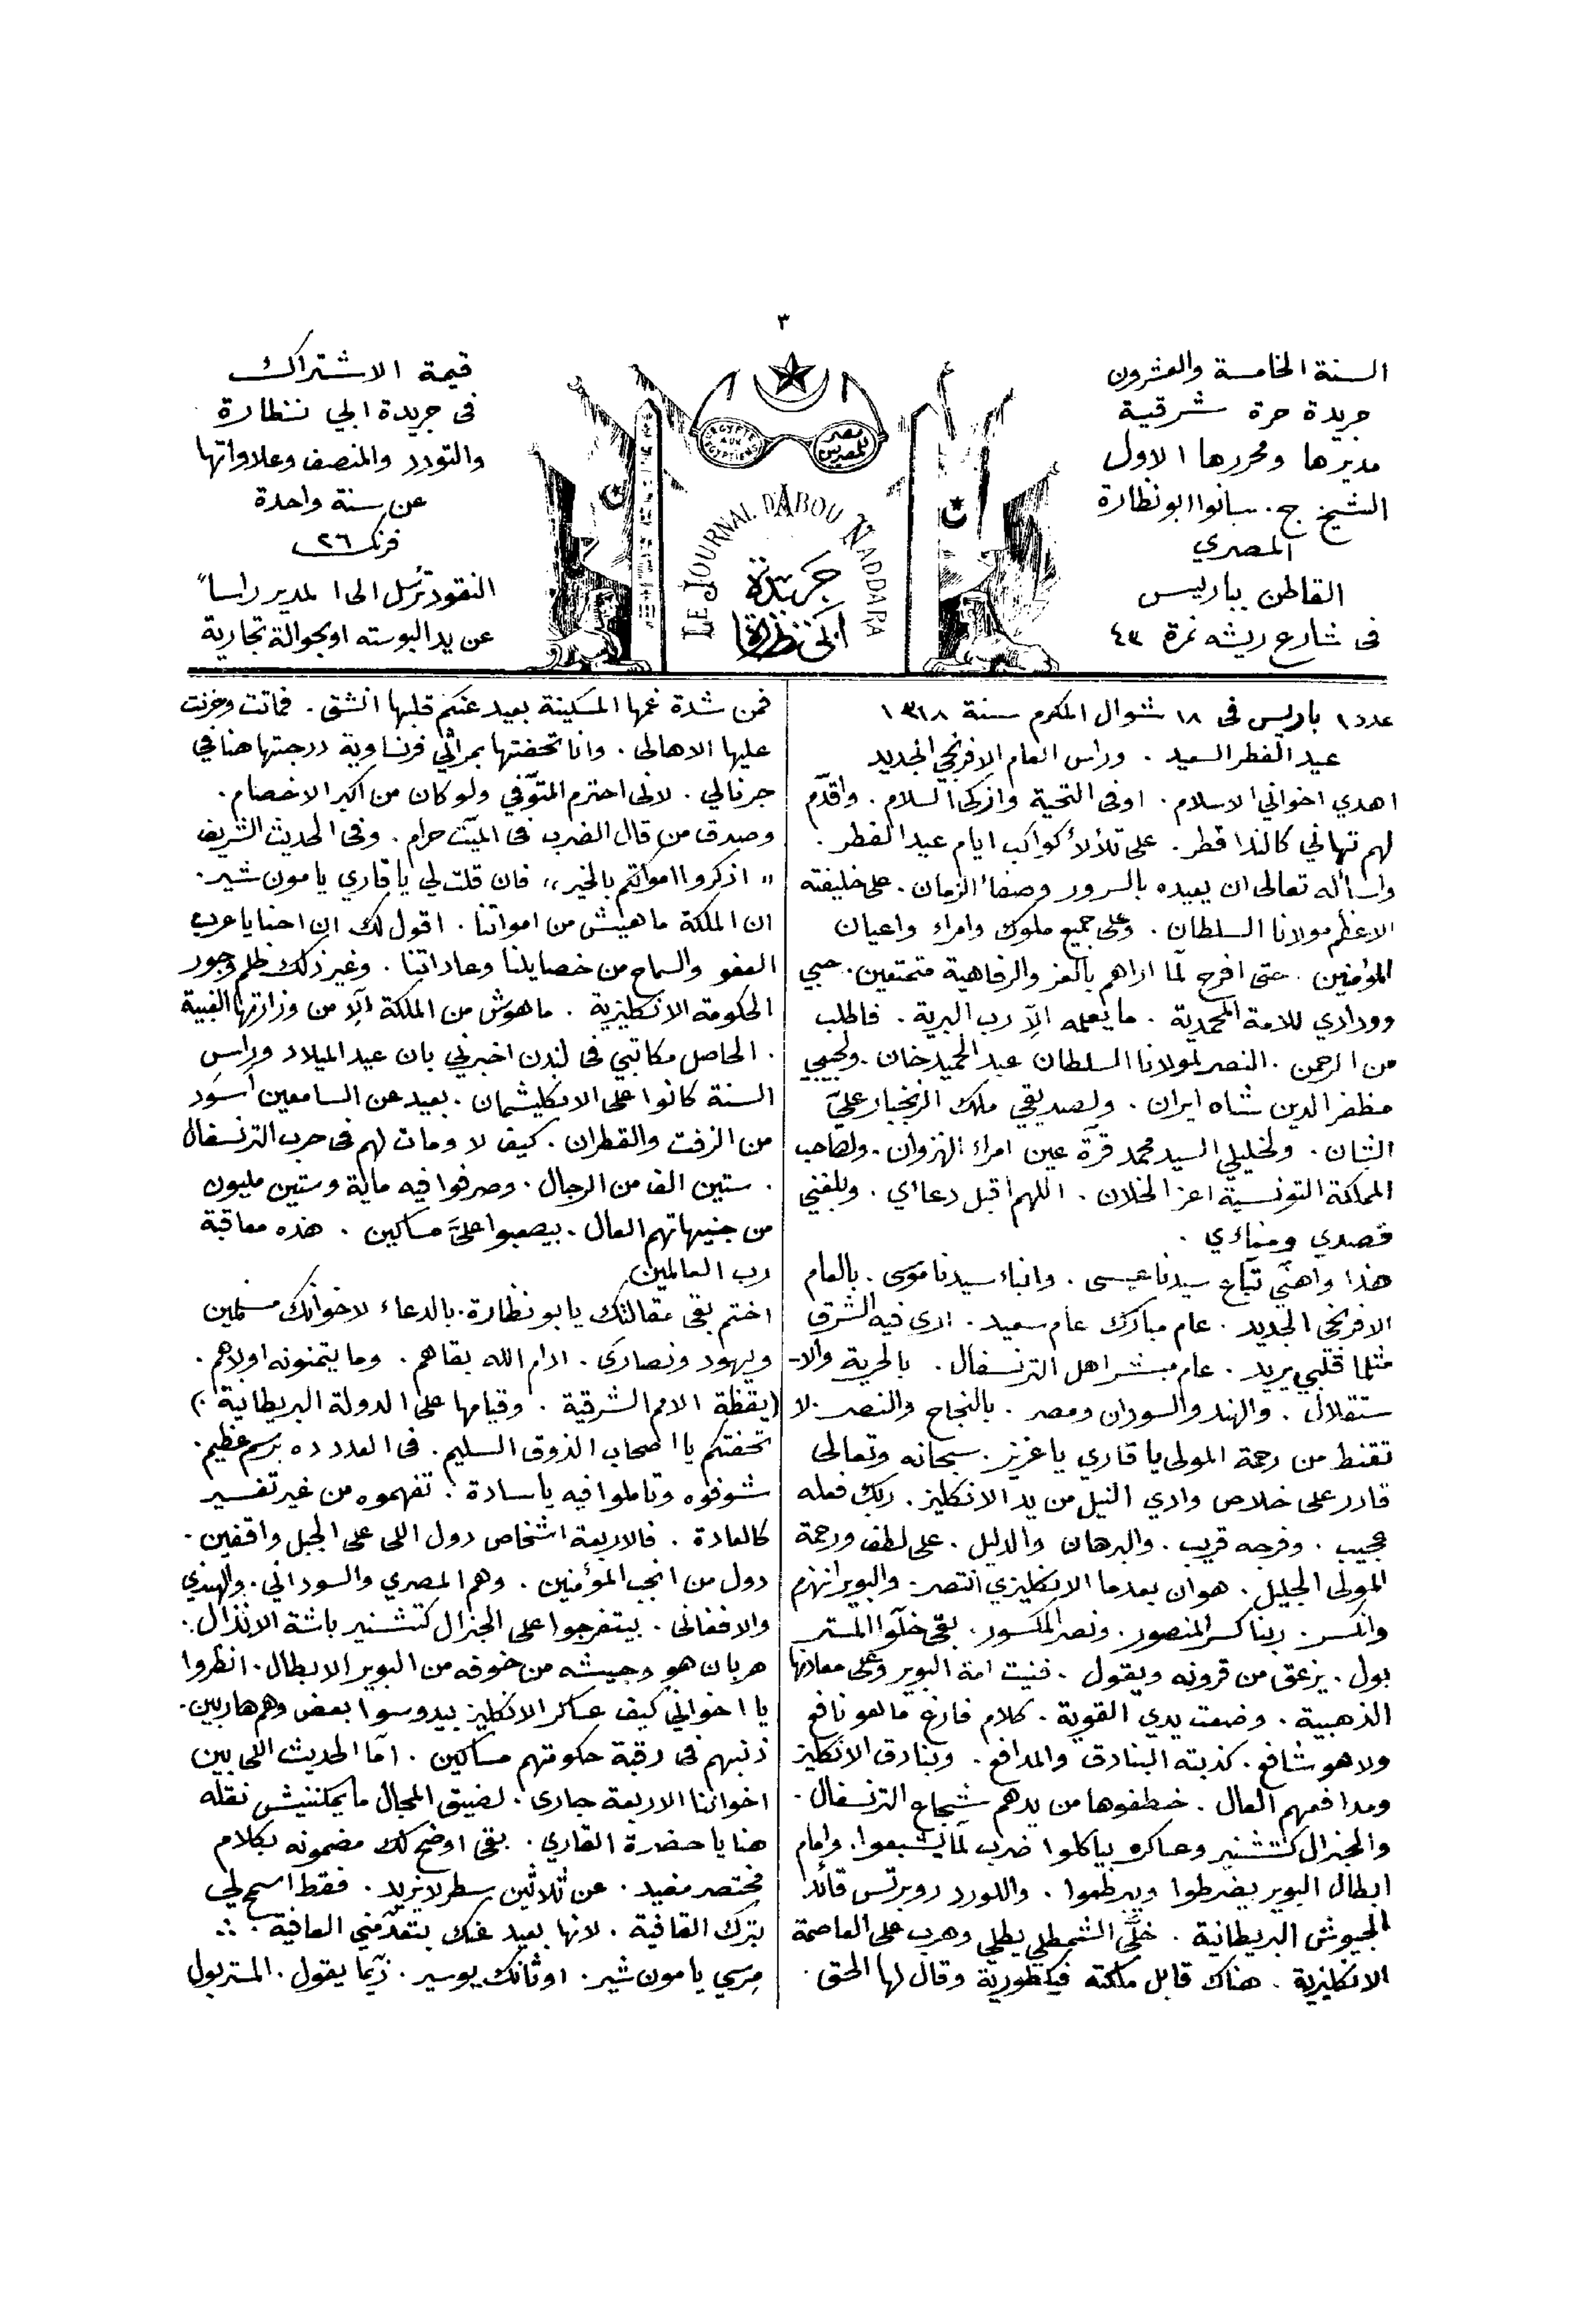 ٣
السنة الخامسة والعشرون
جريدة حرة شرقية
مديرها ومحررها الاول
الشيخ ج. سانوا ابو نظارة
المصري
القاطن بباريس
فى شارع ريشه نمرة ٤٣
مصر للمصريين
EGYPTE AUX EGYPTIENS
LE JOURNAL D'ABOU NADDARA
جريدة
ابى نظارة
قيمة الاشتراك
فى جريدة ابي نظارة
والتودد والمنصف وعلاواتها
عن سنة واحدة
فرنك ٢٦
النقود ترسل الى المدير راساً
عن يد البوسته او بحوالة تجارية
عدد ١ باريس فى ١٨ شوال المكرم سنة ١٣١٨
عيد الفطر السعيد . وراس العام الافرنجي الجديد
اهدي اخواني الاسلام . اوفى التحية وازكى السلام . واقدّم
لهم تهاني كالندا قطر . على تلألأ كواكب ايام عيد الفطر .
واسأله تعالى ان يعيده بالسرور وصفاء الزمان . على خليفته
الاعظم مولانا السلطان . وعلى جميع ملوك وامراء واعيان
المؤمنين . حتى افرح لمّا اراهم بالعز والرفاهية متمتعين . حبي
وودادي للامة المحمدية . ما يعلمه الاّ رب البرية . فاطلب
من الرحمن . النصر لمولانا السلطان عبد الحميد خان . ولحبيبي
مظفر الدين شاه ايران . ولصديقي ملك الزنجبار عليّ
الشان . ولخليلي السيد محمد قرة عين امراء الهزوان . ولصاحب
المملكة التونسية اعز الخلان . اللهم اقبل دعاءي . وبلغني
قصدي ومناءي .
هذا واهنّي تبّاع سيدنا عيسى . وابناء سيدنا موسى . بالعام
الافرنجي الجديد . عام مبارك عام سعيد . ارى فيه الشرق
مثلما قلبي يريد . عام مبشر اهل الترنسفال . بالحرية والا-
ستقلال . والهند والسودان ومصر . بالنجاح والنصر . لا
تقنط من رحمة المولى يا قاري يا عزيز . سبحانه وتعالى
قادر على خلاص وادي النيل من يد الانكليز . ربك فعله
عجيب . وفرجه قريب . والبرهان والدليل . على لطف ورحمة
المولى الجليل . هو ان بعدما الانكليزي انتصر . والبوير انهزم
وانكسر . ربنا كسر المنصور . ونصر المكسور . بقى خلّوا المستر
بول . يزعق من قرونه ويقول . فنيت امة البوير وعلى معادنها
الذهبية . وضعت يدي القوية . كلام فارغ ما هو نافع
ولا هو شافع . كذبته البنادق والمدافع . وبنادق الانكليز
ومدافعهم العال . خطفوها من يدهم شجاع الترنسفال .
والجنرال كتشنير وعساكره بياكلوا ضرب لمّا يشبعوا . وامام
ابطال البوير يضرطوا ويبرطموا . واللورد روبرتس قائد
الجيوش البريطانية . خلّى الشمطلي يطلي وهرب على العاصمة
الانكليزية . هناك قابل ملكته فيكطورية وقال لها الحق .
فمن شدة غمها المسكينة بعيد عنكم قلبها انشق . فماتت وحزنت
عليها الاهالى . وانا تحفتها بمراثي فرنساوية درجتها هنا في
جرنالي . لانى احترم المتوّفي ولو كان من اكبر الاخصام .
وصدق من قال الضرب فى الميّت حرام . وفى الحديث الشريف
" اذكروا امواتكم بالخير " فان قلت لي يا قاري يا مون شير .
ان الملكة ما هيش من امواتنا . اقول لك ان احنا يا عرب
العفو والسماح من خصايلنا وعاداتنا . وغير ذلك ظلم وجور
الحكومة الانكليزية . ما هوش من الملكة الّا من وزارتها الغبية
. الحاصل مكاتبي فى لندن اخبرني بان عيد الميلاد وراس
السنة كانوا على الانكليشمان . بعيد عن السامعين أسود
من الزفت والقطران . كيف لا ومات لهم فى حرب الترنسفال
. ستين الف من الرجال . وصرفوا فيه ماية وستين مليون
من جنيهاتهم العال . بيصعبوا عليّ مساكين . هذه معاقبة
رب العالمين
اختم بقى مقالتك يا بو نظارة . بالدعاء لاخوانك مسلمين
ويهود ونصارى . ادام الله بقاهم . وما يتمنونه اولاهم .
(يقظة الامم الشرقية . وقيامها على الدولة البريطانية .)
تحفتكم يا اصحاب الذوق السليم . فى العدد ده برسم عظيم .
شوفوه وتاملوا فيه يا سادة . تفهموه من غير تفسير
كالعادة . فالاربعة اشخاص دول اللى على الجبل واقفين .
دول من انجب المؤمنين . وهم المصري والسوداني . والهندي
والافغانى . بيتفرجوا على الجنرال كتشنير باشة الانذال .
هربان هو وجيشه من خوفه من البوير الابطال . انظروا
يا اخواني كيف عساكر الانكليز بيدوسوا بعض وهم هاربين .
ذنبهم فى رقبة حكومتهم مساكين . امّا الحديث اللى بين
اخواننا الاربعة جارى . لضيق المجال ما يمكننيش نقله
هنا يا حضرة القاري . بقى اوضح لك مضمونه بكلام
مختصر مفيد . عن ثلاثين سطر لا يزيد . فقط اسمح لي
بترك القافية . لانها بعيد عنك بتعدّمني العافية . ∴
مرسي يا مون شير . او ثانك يو سير . زيّما يقول . المستر بول